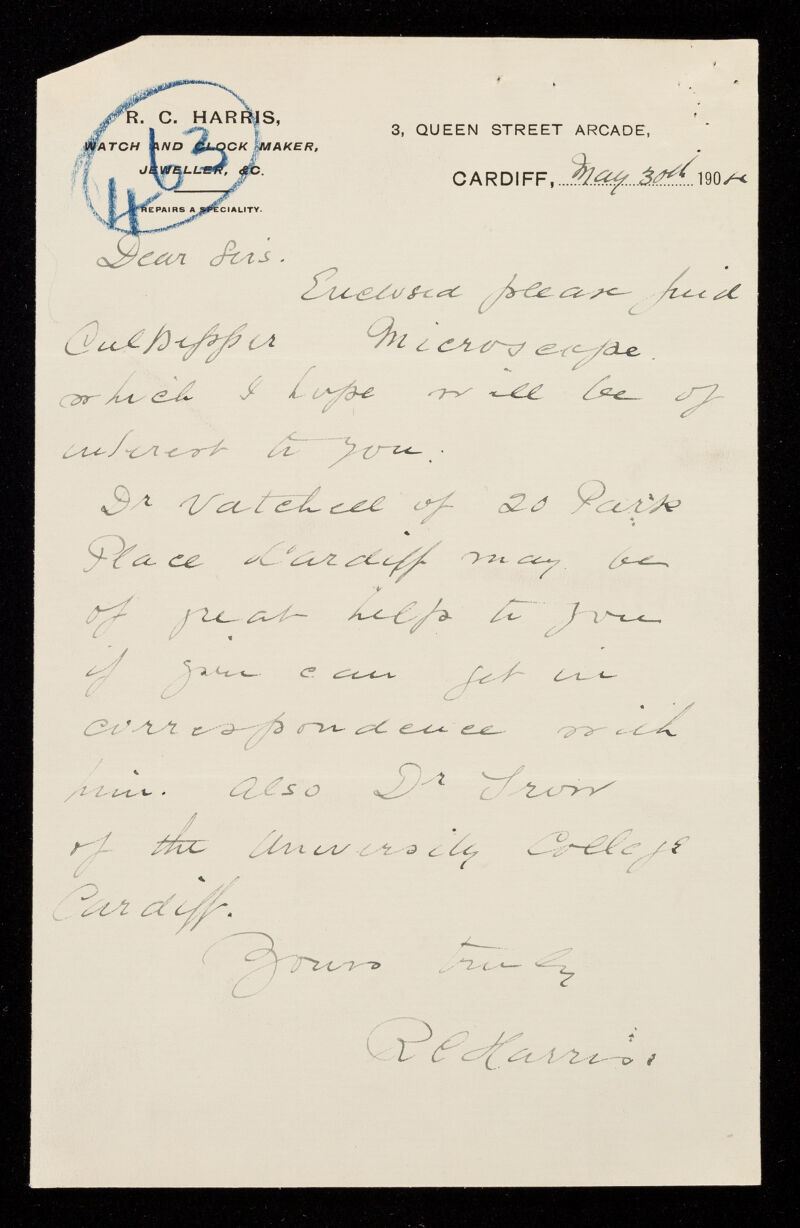 R. C. HARRIS,
WATCH AND CLOCK MAKER,
JEWELLER, &C.
REPAIRS A SPECIALITY.
463
3, QUEEN STREET ARCADE,
CARDIFF, May 30th 190
Dear Sirs.
Enclosed please find
Culpepper Microscope
which I hope will be of
interest to you.
Dr Vatchell of 20 Park
Place Cardiff may be
of great help to you
if you can get in
correspondence with
him. Also Dr Trow
of the University College
Cardiff.
Yours truly
R C Harris